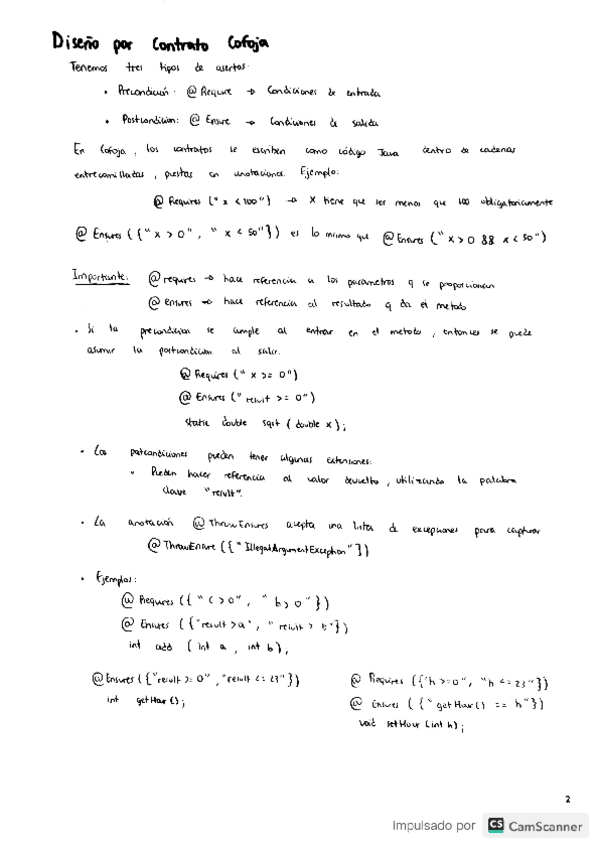 Diseño por Contrato Cofoja
Tenemos tres tipos de asertos:
• Precondición: @Require → Condiciones de entrada
• Postcondicion: @Ensure → Condiciones de salida
En Cofoja, los contratos se escriben como código Java dentro de cadenas
entrecomilladas, puestas en anotaciones. Ejemplo:
@Requires ("x < 100") → X tiene que ser menos que 100 obligatoriamente
@Ensures ({"x > 0", "x < 50"}) es lo mismo que @Ensures ("x > 0 && x < 50")
Importante: @requires → hace referencia a los parametros q se proporcionan
@ensures → hace referencia al resultado q da el metodo
• Si la precondicion se cumple al entrar en el metodo, entonces se puede
asumir la postcondicion al salir.
@Requires ("x >= 0")
@Ensures ("result >= 0")
static double sqrt (double x);
• Las postcondiciones pueden tener algunas extensiones:
• Pueden hacer referencia al valor devuelto, utilizando la palabra
clave "result".
• La anotación @ThrowEnsures acepta una lista de excepciones para capturar
@ThrowEnsure ({"IllegalArgumentException"})
• Ejemplos:
@Requires ({"c > 0", "b > 0"})
@Ensures ({"result > a", "result > b"})
int add (int a, int b),
@Ensures ({"result >= 0", "result <= 23"})
int getHour ();
@Requires ({"h >= 0", "h <= 23"})
@Ensures ({"getHour() == h"})
void setHour (int h);
2
Impulsado por CS CamScanner